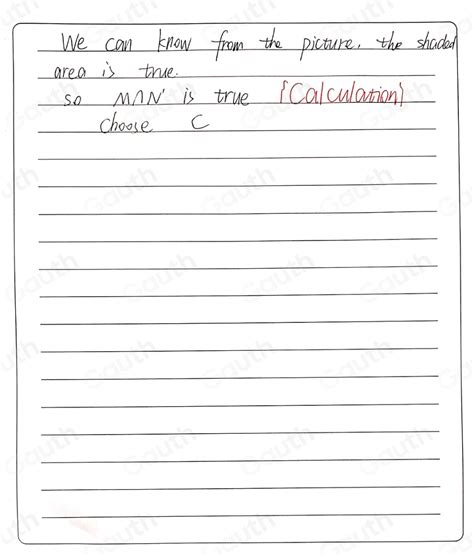 We can know from the picture, the shaded
area is true.
so M∩N' is true {Calculation}
choose C